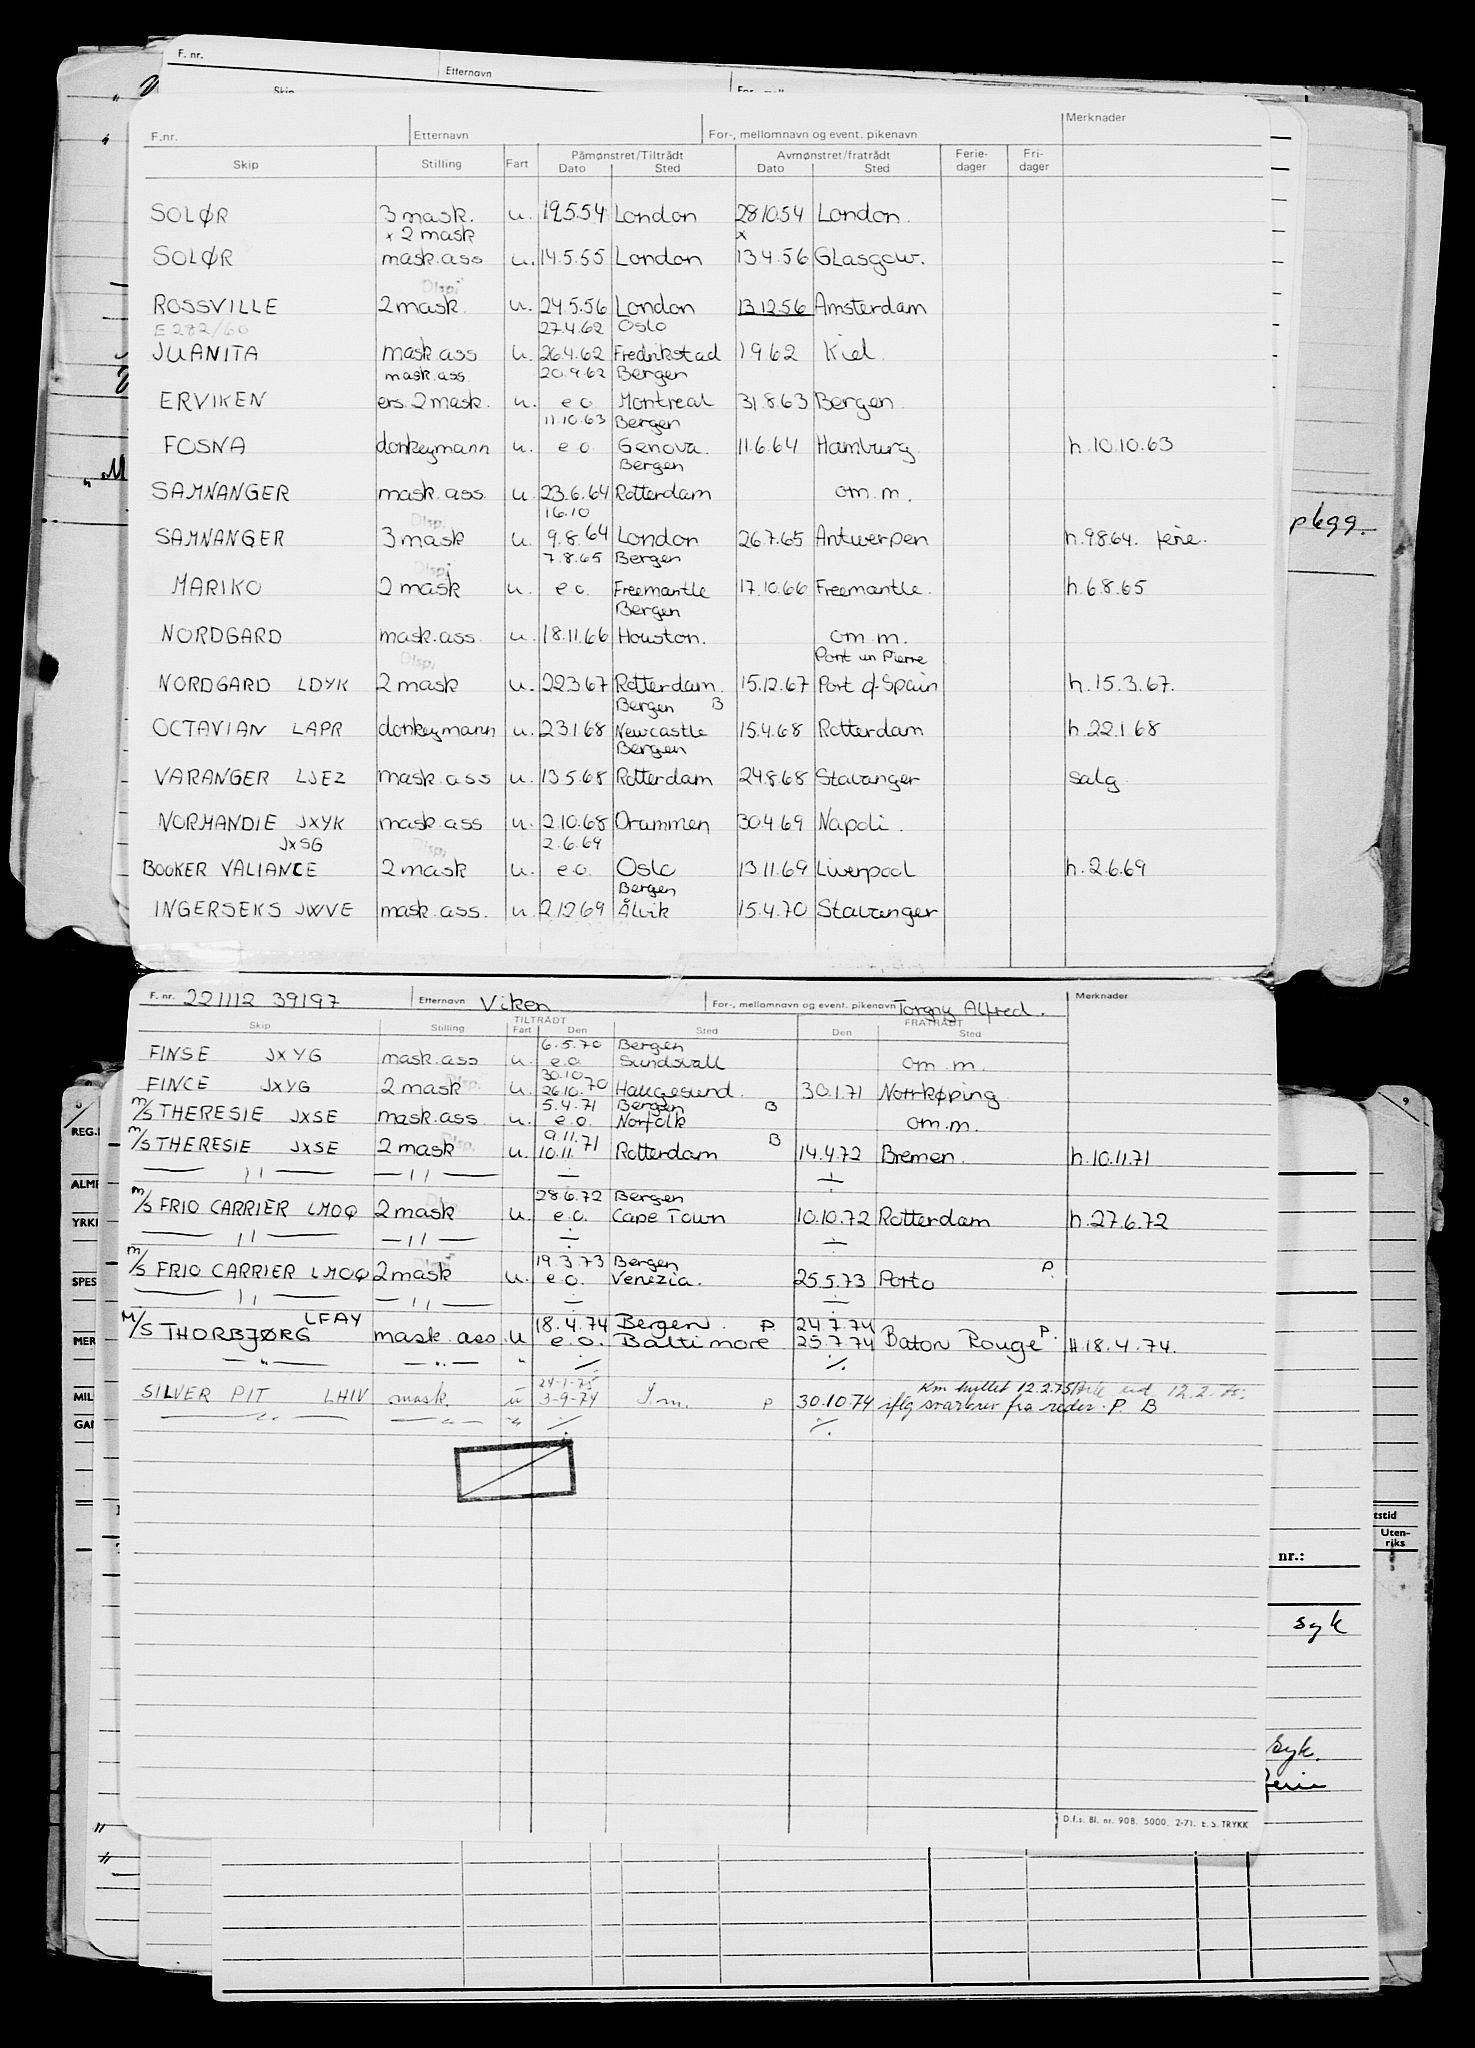 F. nr. Etternavn
Skip
F.nr. Etternavn For-, mellomnavn og event. pikenavn Merknader
Skip Stilling Fart Påmønstret/Tiltrådt Avmønstret/fratrådt Ferie-dager Fri-dager
Dato Sted Dato Sted
SOLØR 3 mask. u. 19.5.54 London 28.10.54 London.
x 2 mask x
SOLØR mask.ass u. 14.5.55 London 13.4.56 Glasgow.
Dispi
ROSSVILLE 2 mask. u. 24.5.56 London 13.12.56 Amsterdam
E 282/60 27.4.62 Oslo
JUANITA mask ass u. 26.4.62 Fredrikstad 1.9.62 Kiel.
mask.ass. 20.9.62 Bergen
ERVIKEN ers. 2 mask. u. e.o. Montreal 31.8.63 Bergen.
11.10.63 Bergen
FOSNA donkeymann u. e.o. Genova. 11.6.64 Hamburg h. 10.10.63
Bergen
SAMNANGER mask.ass. u. 23.6.64 Rotterdam om.m.
16.10
Disp.
SAMNANGER 3 mask u. 9.8.64 London 26.7.65 Antwerpen h.9864. ferie.
7.8.65 Bergen
Dispi
MARIKO 2 mask u. e.o. Freemantle 17.10.66 Freemantle. h.6.8.65
Bergen
NORDGARD mask.ass. u. 18.11.66 Houston. om.m.
Dispi Pont un Pierre
NORDGARD LDYK 2 mask u. 22.3.67 Rotterdam. 15.12.67 Port of Spain h.15.3.67.
Bergen B
OCTAVIAN LAPR donkeymann u. 23.1.68 Newcastle 15.4.68 Rotterdam h.22.1.68
Bergen
VARANGER LJEZ mask.ass u. 13.5.68 Rotterdam 24.8.68 Stavanger salg
NORMANDIE JXYK mask.ass u. 2.10.68 Drammen 30.4.69 Napoli.
JXSG Dispi 2.6.69
BOOKER VALIANCE 2 mask u. e.o. Oslo 13.11.69 Liverpool h.2.6.69
Bergen
INGERSEKS JWVE mask.ass. u. 2.12.69 Ålvik 15.4.70 Stavanger
F. nr. 221112 39197 Etternavn Viken For-, mellomnavn og event. pikenavn Torgny Alfred. Merknader
Skip Stilling TILTRÅDT FRATRÅDT
Fart Den Sted Den Sted
6.5.70 Bergen
FINSE JXYG mask.ass u. e.o. Sundsvall om.m.
30.10
FINCE JXYG 2 mask Disp. u. 26.10.70 Haugesund. 30.1.71 Norrkøping
5.4.71 Bergen B
m/s THERESIE JXSE mask.ass. u. e.o. Norfolk om.m.
9.11.71 B
m/s THERESIE JXSE 2 mask Disp. u. 10.11. Rotterdam 14.4.72 Bremen. h.10.11.71
— 11 — — 11 — ÷ ÷
28.6.72 Bergen
m/s FRIO CARRIER LMOQ 2 mask u. e.o. Cape Town 10.10.72 Rotterdam h.27.6.72
— 11 — — 11 — ÷ ÷
19.3.73 Bergen
m/s FRIO CARRIER LMOQ 2 mask u. e.o. Venezia. 25.5.73 Porto P.
— 11 — — 11 — ÷ ÷
LFAY 18.4.74 Bergen. P 24.7.74
M/S THORBJØRG mask.ass. u e.o. Baltimore 25.7.74 Baton Rouge P. H.18.4.74.
— " — — " — " ./. ./.
24-1-75 Km hullet 12.2.75
SILVER PIT LHIV mask u 3-9-74 P 30.10.74 iflg svarbrev fra reder. P. B
— " — — " — " ./. ./.
D.f.s. Bl. nr. 908. 5000. 2-71. E.S. TRYKK
REG.
ALM
YRK
SPES
MER
MIL
GA
pbgg.
9
tstid
Uten-riks
nr.:
syk
Syk.
ferie